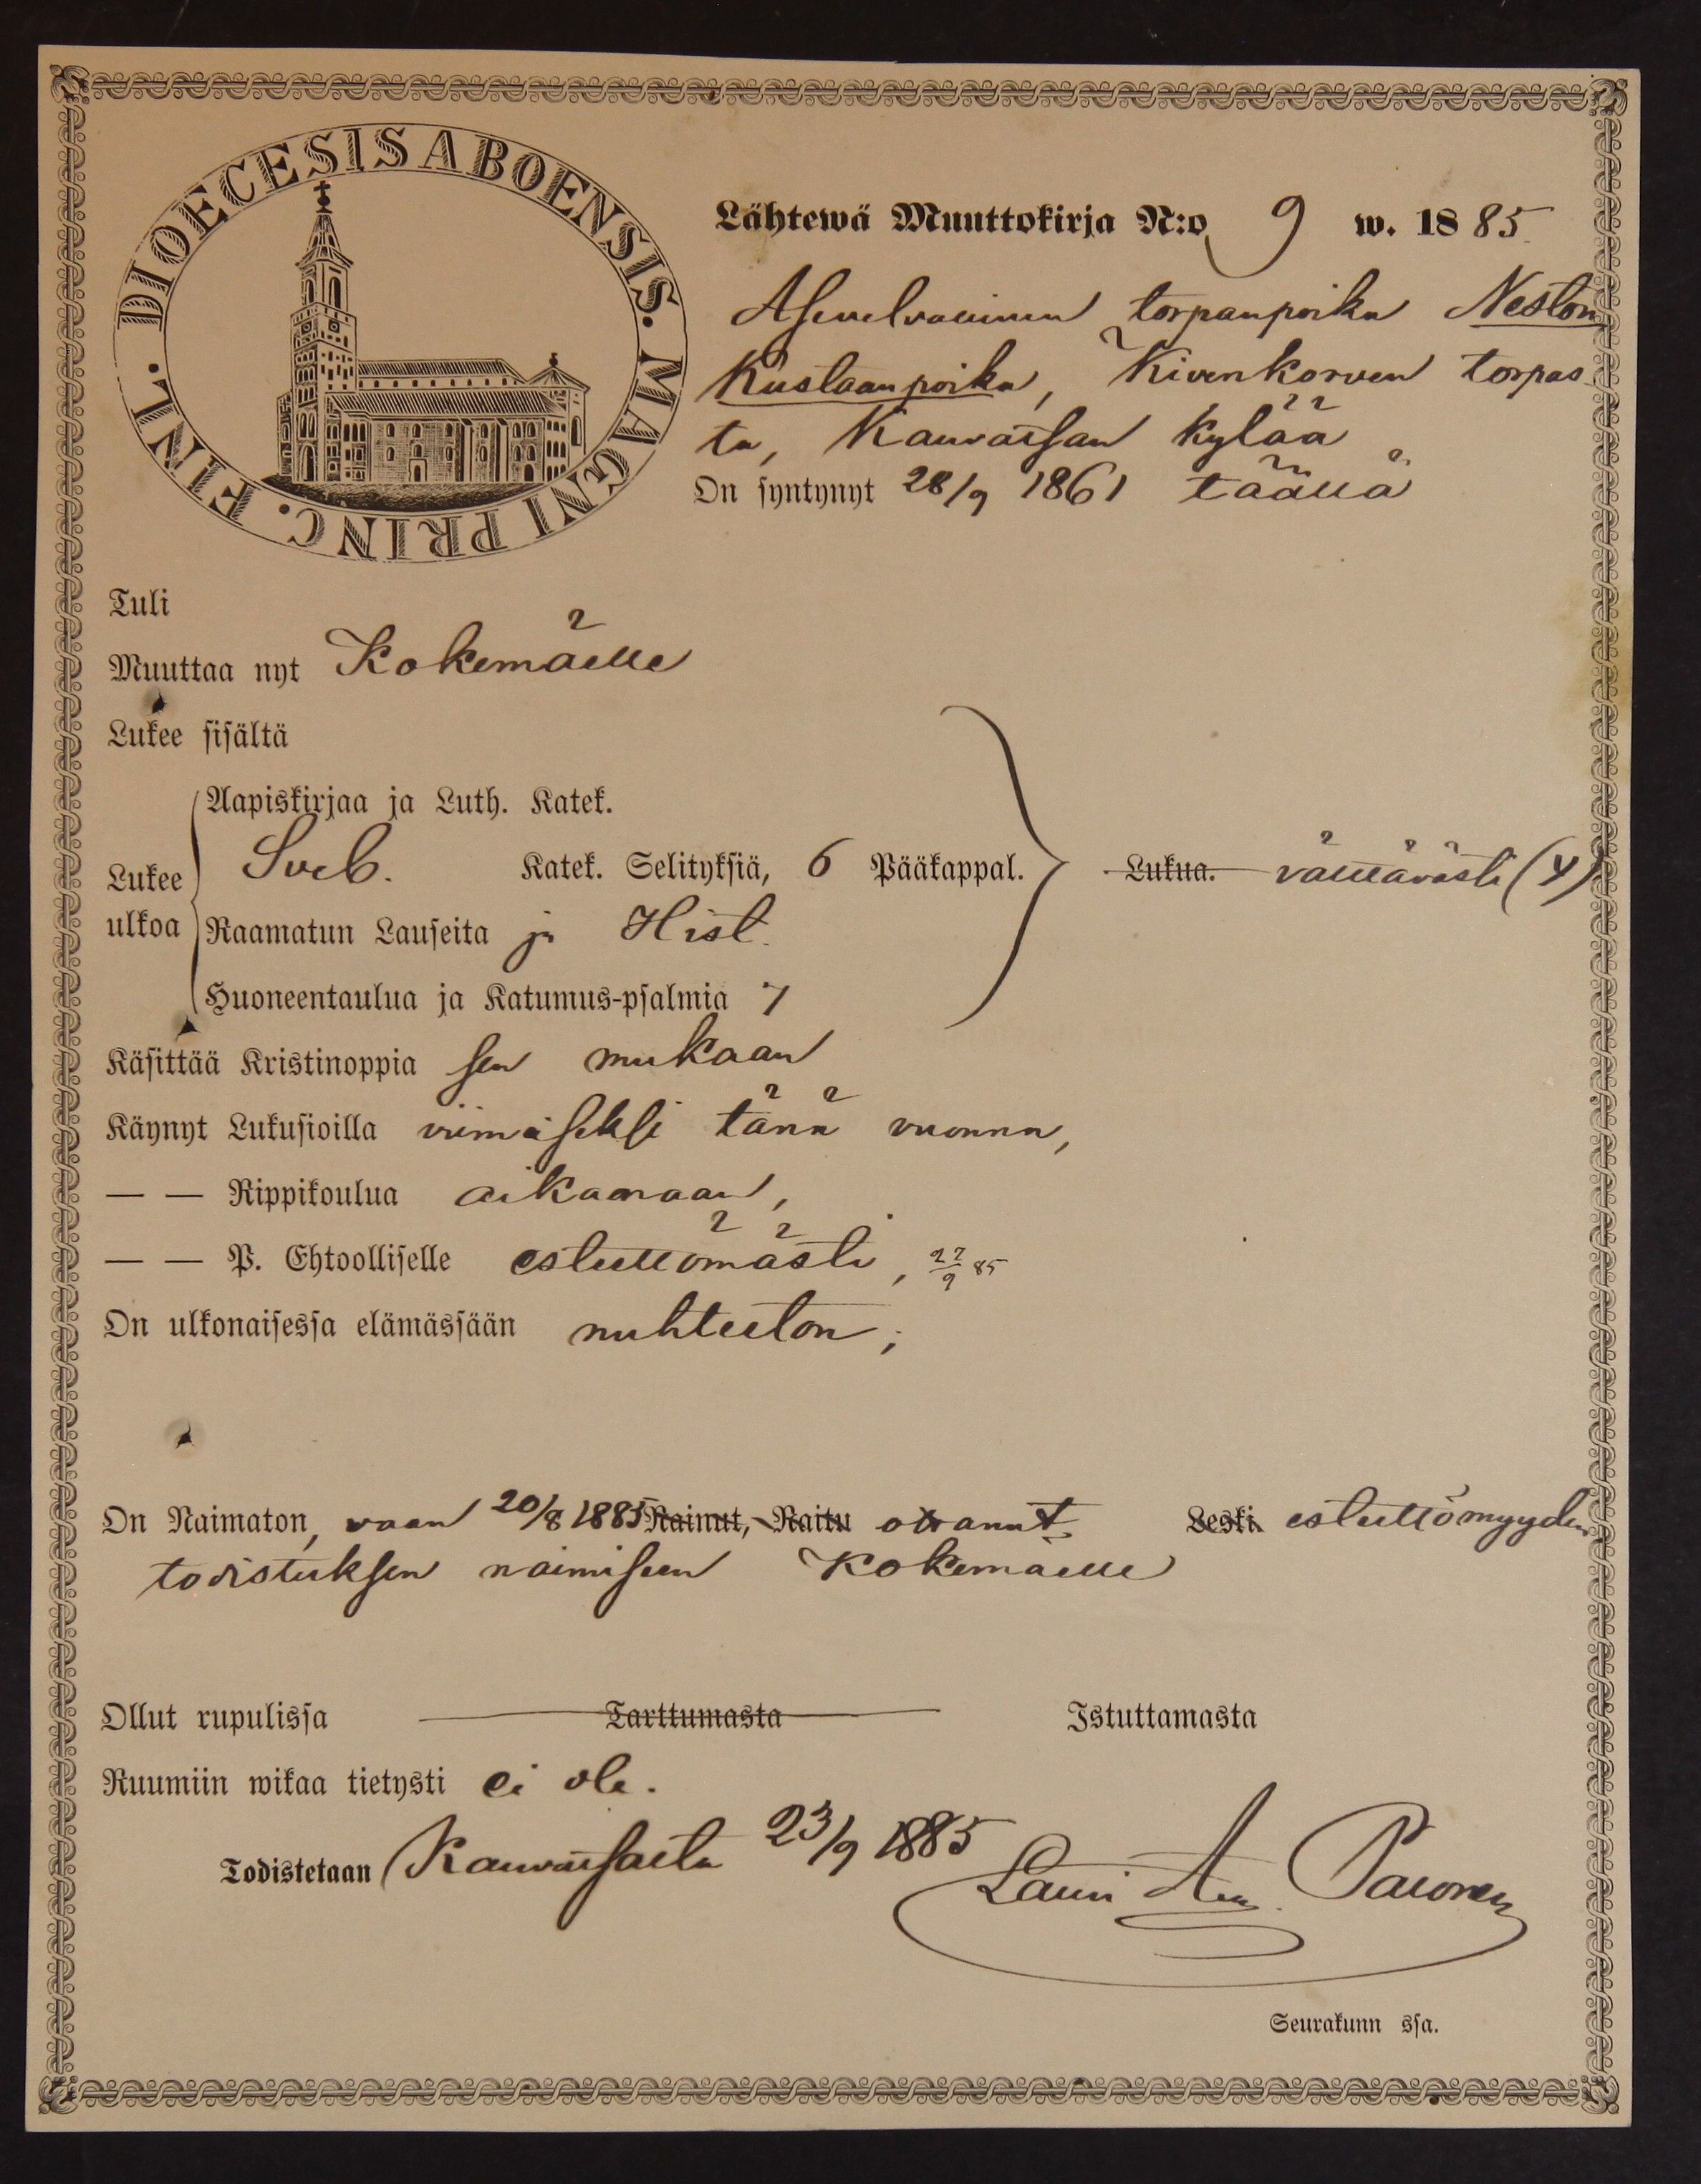 DIOECESIS ABOENSIS. MAGNI PRINC. FINL.
Lähtewä Muuttokirja N:o 9 w. 1885.
Asevelvollinen torpanpoika Nestor
Kustaanpoika, Kivenkorven torpas-
ta, Kauvatsan kylää
On syntynyt 28/9 1861 täällä
Tuli
Muuttaa nyt Kokemäelle
Lukee sisältä
Aapiskirjaa ja Luth. Katek.
Lukee ulkoa Sveb. Katek. Selityksiä, 6 Pääkappal. Lukua. välttävästi (y)
Raamatun Lauseita ja Hist.
Huoneentaulua ja Katumus-psalmia 7
Käsittää Kristinoppia sen mukaan
Käynyt Lukusioilla viimeiseksi tänä vuonna,
— — Rippikoulua aikanaan,
— — P. Ehtoolliselle esteettömästi, 22/9 85
On ulkonaisessa elämässään nuhteeton;
On Naimaton, vaan 20/8 1885 Nainut, Naitu ottanut Leski. esteettömyyden
todistuksen naimiseen Kokemäelle
Ollut rupulissa Tarttumasta Istuttamasta
Ruumiin wikaa tietysti ei ole.
Todistetaan Kauvatsalta 23/9 1885
Lauri Paronen
Seurakunn ssa.